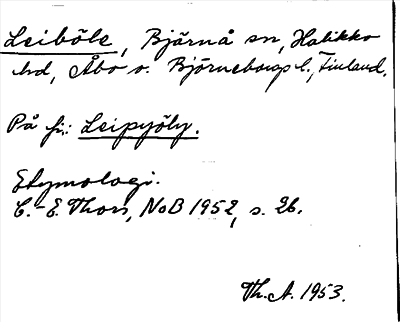 Leiböle, Bjärnå sn, Halikko
hd, Åbo o. Björneborgs l., Finland.
På fi.: Leipyöly.
Etymologi.
C.-E. Thors, NoB 1952, s. 26.
Th. A. 1953.